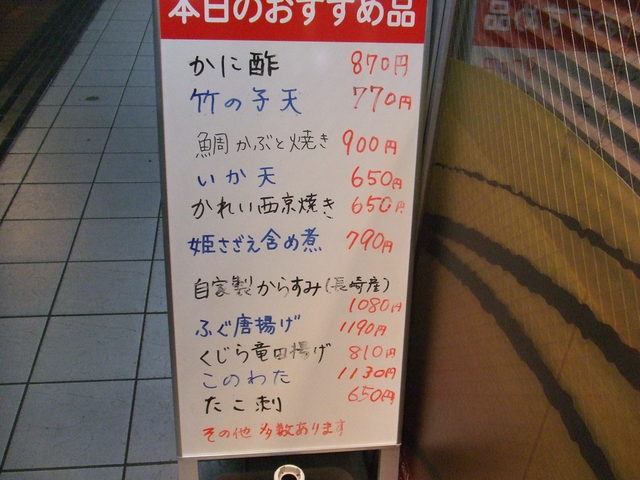 本日のおすすめ品
かに酢 870円
竹の子天 770円
鯛かぶと焼き 900円
いか天 650円
かれい西京焼き 650円
姫さざえ含め煮 790円
自家製からすみ(長崎産)
1080円
ふぐ唐揚げ 1190円
くじら竜田揚げ 810円
このわた 1130円
たこ刺 650円
その他多数あります